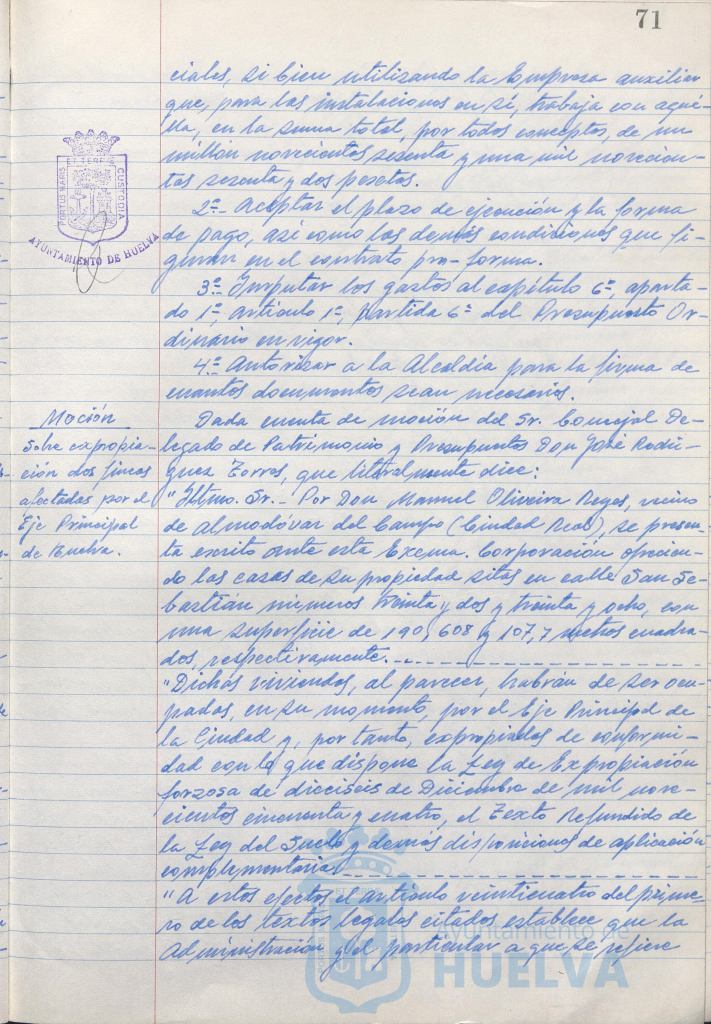 71
ciales, si bien utilizando la Empresa auxiliar
que, para las instalaciones en sí, trabaja con aqué-
lla, en la suma total, por todos conceptos, de un
millón novecientas sesenta y una mil novecien-
tas sesenta y dos pesetas.
2º.- Aceptar el plazo de ejecución y la forma
de pago, así como las demás condiciones que fi-
guran en el contrato pro-forma.
3º.- Imputar los gastos al capítulo 6º, aparta-
do 1º, artículo 1º, Partida 6ª del Presupuesto Or-
dinario en vigor.
4º.- Autorizar a la Alcaldía para la firma de
cuantos documentos sean necesarios.
Moción
Sobre expropia-
ción dos fincas
afectadas por el
Eje Principal
de Huelva.
Dada cuenta de moción del Sr. Concejal De-
legado de Patrimonio y Presupuestos Don José Rodrí-
guez Torres, que literalmente dice:
"Iltmo. Sr.- Por Don Manuel Oliveira Reyes, vecino
de Almodóvar del Campo (Ciudad Real), se presen-
ta escrito ante esta Excma. Corporación ofrecien-
do las casas de su propiedad sitas en calle San Se-
bastián números treinta y dos y treinta y ocho, con
una superficie de 190,608 y 107,7 metros cuadra-
dos, respectivamente.
"Dichas viviendas, al parecer, habrán de ser ocu-
padas, en su momento, por el Eje Principal de
la Ciudad y, por tanto, expropiadas de conformi-
dad con lo que dispone la Ley de Expropiación
forzosa de dieciséis de Diciembre de mil nove-
cientos cincuenta y cuatro, el Texto Refundido de
la Ley del Suelo y demás disposiciones de aplicación
complementaria.
"A estos efectos el artículo veinticuatro del prime-
ro de los textos legales citados establece que la
Administración y el particular a que se refiere
PORTUS MARIS ET TERRE CUSTODIA
AYUNTAMIENTO DE HUELVA
Ayuntamiento de
HUELVA